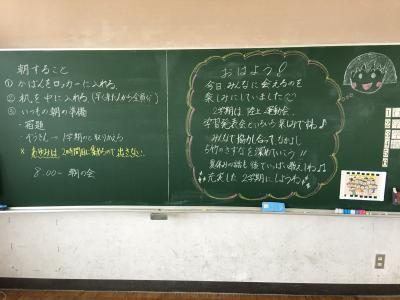 朝すること
① かばんをロッカーに入れる。
② 机を中に入れる(早く来た人から全員分)
③ いつもの朝の準備
・宿題
・ぞうきん→1学期のと取りかえる
※ 夏休みは2時間目に集めるので出さない。
8:00~ 朝の会
おはよう!
今日みんなに会えるのを
楽しみにしていました♡
2学期は 陸上、運動会、
学習発表会といろいろあります♪
みんなで協力し合って、なかよし
5竹のきずなを深めていこう!!
夏休みの話もきいていっぱい教えてね♪
充実した2学期にしようね